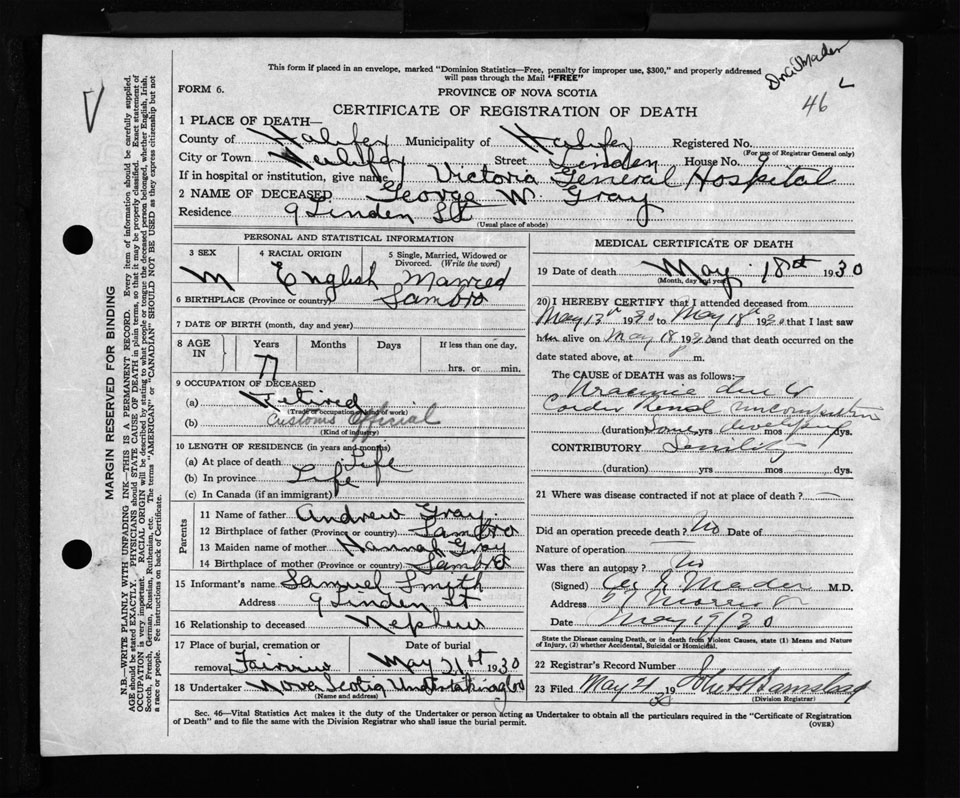 This form if placed in an envelope, marked "Dominion Statistics—Free, penalty for improper use, $300," and properly addressed
will pass through the Mail "FREE"
46
FORM 6.
PROVINCE OF NOVA SCOTIA
CERTIFICATE OF REGISTRATION OF DEATH
1 PLACE OF DEATH—
County of Halifax Municipality of Halifax Registered No.
(For use of Registrar General only)
City or Town Halifax Street Linden House No. 9
If in hospital or institution, give name Victoria General Hospital
2 NAME OF DECEASED George W. Gray
Residence 9 Linden St
(Usual place of abode)
PERSONAL AND STATISTICAL INFORMATION
3 SEX 4 RACIAL ORIGIN 5 Single, Married, Widowed or
Divorced. (Write the word)
M English Married
6 BIRTHPLACE (Province or country) Sambro
7 DATE OF BIRTH (month, day and year)
8 AGE IN Years Months Days If less than one day,
77 hrs. or min.
9 OCCUPATION OF DECEASED
(a) Retired
(Trade or occupation or kind of work)
(b) Customs Official
(Kind of industry)
10 LENGTH OF RESIDENCE (in years and months)
(a) At place of death Life
(b) In province Life
(c) In Canada (if an immigrant)
Parents
11 Name of father Andrew Gray
12 Birthplace of father (Province or country) Sambro
13 Maiden name of mother Hannah Gray
14 Birthplace of mother (Province or country) Sambro
15 Informant's name Samuel Smith
Address 9 Linden St
16 Relationship to deceased Nephew
17 Place of burial, cremation or Date of burial
removal Fairview May 21st 1930
18 Undertaker Nova Scotia Undertaking Co
(Name and address)
MEDICAL CERTIFICATE OF DEATH
19 Date of death May 18th 1930
(Month, day and year)
20 I HEREBY CERTIFY that I attended deceased from
May 13th 1930 to May 18th 1930 that I last saw
him alive on May 18 1930 and that death occurred on the
date stated above, at 8 m.
The CAUSE of DEATH was as follows:
Uraemia due to
Cardio Renal
(duration) yrs mos dys.
CONTRIBUTORY Senility
(duration) yrs mos. dys.
21 Where was disease contracted if not at place of death?
Did an operation precede death? No Date of
Nature of operation
Was there an autopsy? No
(Signed) Mader M.D.
Address Morris St
Date May 19/30
State the Disease causing Death, or in death from Violent Causes, state (1) Means and Nature
of Injury, (2) whether Accidental, Suicidal or Homicidal.
22 Registrar's Record Number
23 Filed May 21 1930
(Division Registrar)
Sec. 46—Vital Statistics Act makes it the duty of the Undertaker or person acting as Undertaker to obtain all the particulars required in the "Certificate of Registration
of Death" and to file the same with the Division Registrar who shall issue the burial permit.
(OVER)
MARGIN RESERVED FOR BINDING
N.B.—WRITE PLAINLY WITH UNFADING INK—THIS IS A PERMANENT RECORD. Every item of information should be carefully supplied.
AGE should be stated EXACTLY. PHYSICIANS should STATE CAUSE OF DEATH in plain terms, so that it may be properly classified. Exact statement of
OCCUPATION is very important. RACIAL ORIGIN will be described by stating to what people or tongue the deceased person belonged, whether English, Irish,
Scotch, French, German, Russian, Ruthenian, etc. The terms "AMERICAN" or "CANADIAN" SHOULD NOT BE USED as they express citizenship but not
a race or people. See instructions on back of Certificate.